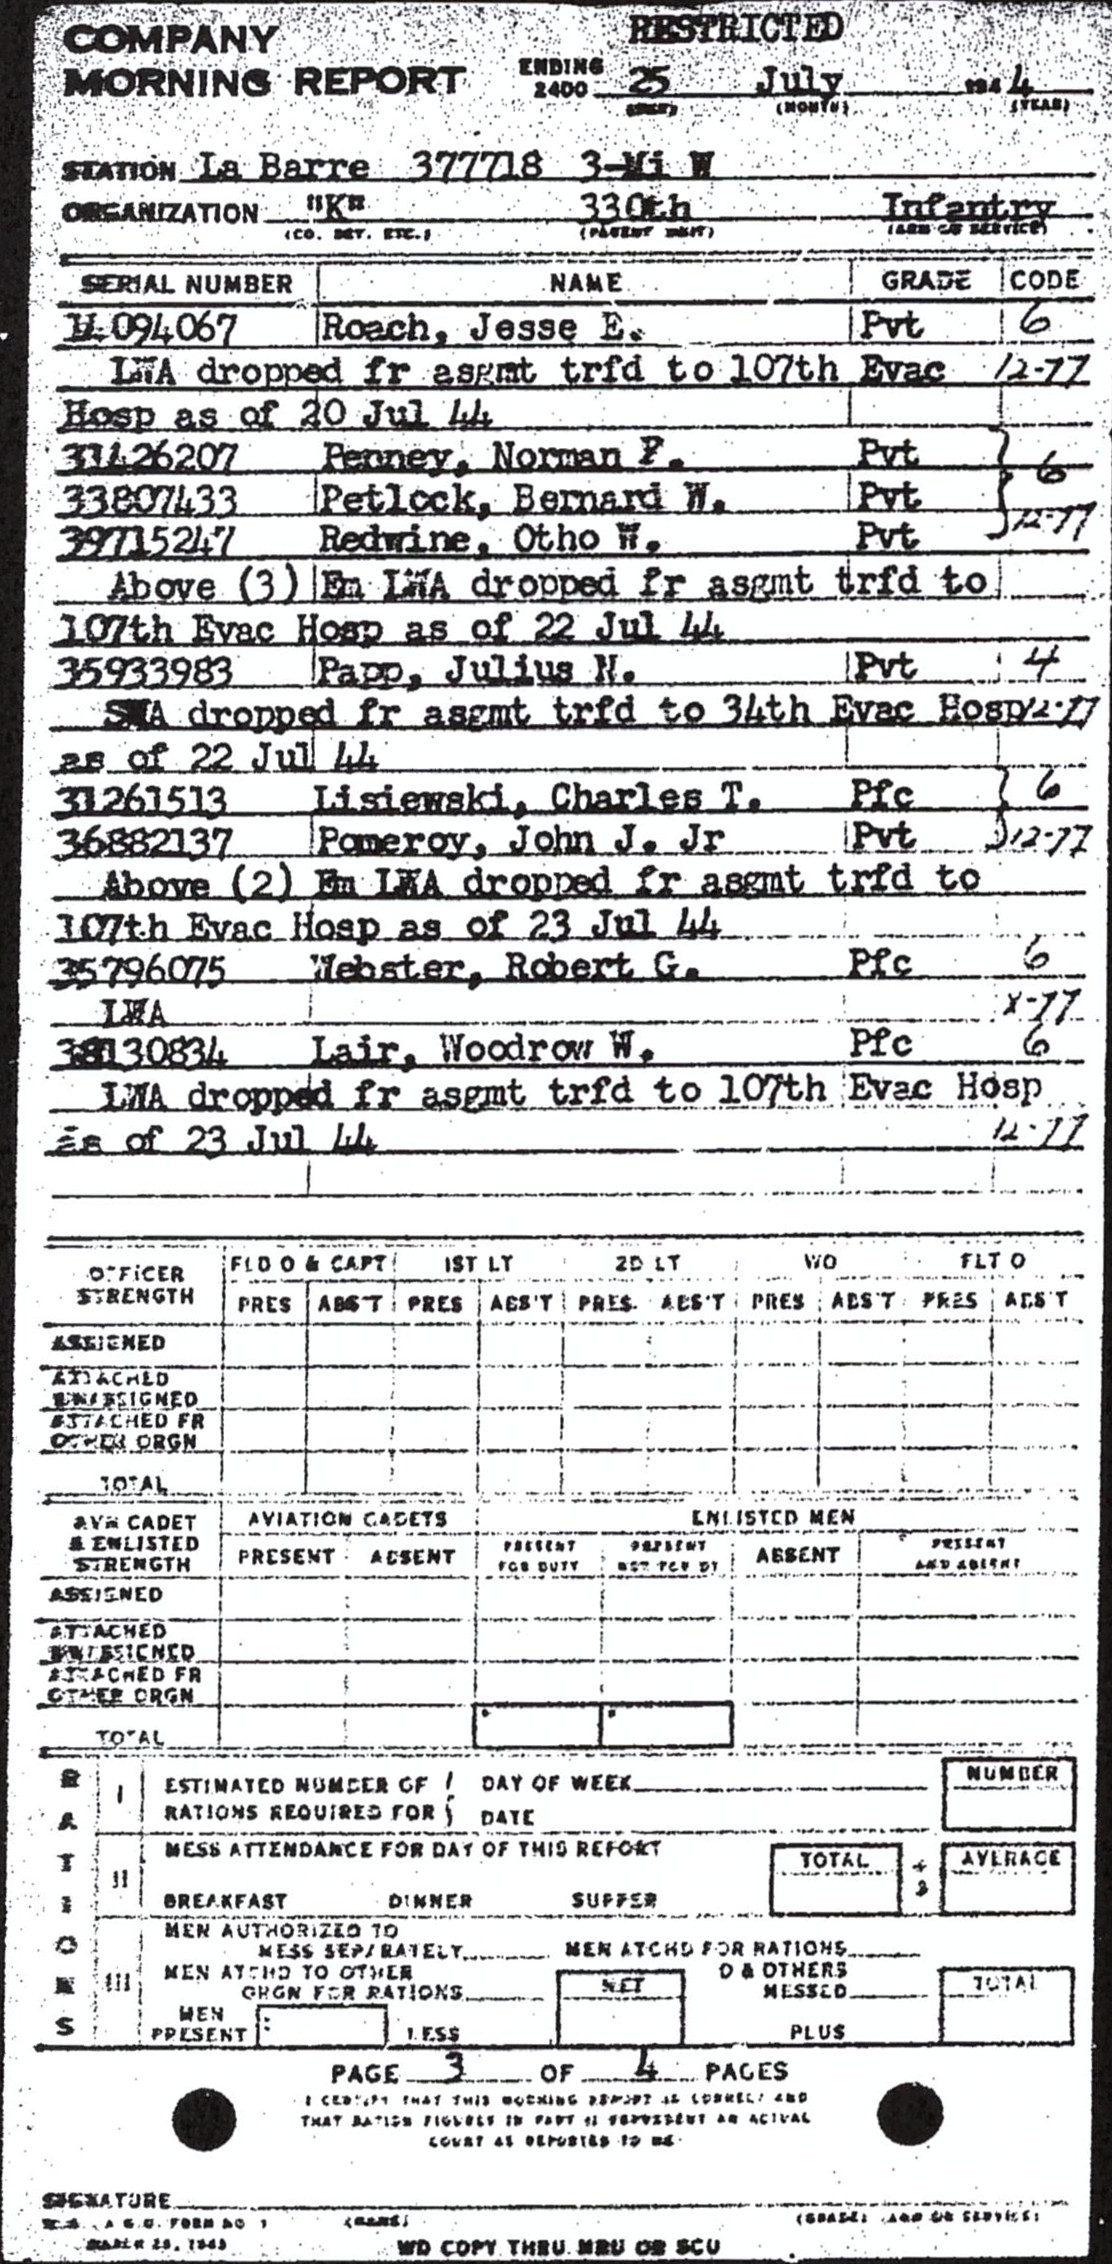 RESTRICTED
COMPANY
MORNING REPORT ENDING 2400 25 July 1944
(DAY) (MONTH) (YEAR)
STATION La Barre 377718 3-Mi W
ORGANIZATION "K" 330th Infantry
(CO. DET. ETC.) (PARENT UNIT) (ARM OR SERVICE)
SERIAL NUMBER NAME GRADE CODE
14094067 Roach, Jesse E. Pvt 6
LWA dropped fr asgmt trfd to 107th Evac 12-77
Hosp as of 20 Jul 44
31426207 Penney, Norman F. Pvt 6
33807433 Petlock, Bernard W. Pvt
39715247 Redwine, Otho W. Pvt 12-77
Above (3) Em LWA dropped fr asgmt trfd to
107th Evac Hosp as of 22 Jul 44
35933983 Papp, Julius N. Pvt 4
SWA dropped fr asgmt trfd to 34th Evac Hosp 12-77
as of 22 Jul 44
31261513 Lisiewski, Charles T. Pfc 6
36882137 Pomeroy, John J. Jr Pvt 12-77
Above (2) Em LWA dropped fr asgmt trfd to
107th Evac Hosp as of 23 Jul 44
35796075 Webster, Robert G. Pfc 6
LWA X-77
38130834 Lair, Woodrow W. Pfc 6
LWA dropped fr asgmt trfd to 107th Evac Hosp
as of 23 Jul 44 12-77
OFFICER STRENGTH FLD O & CAPT 1ST LT 2D LT WO FLT O
PRES ABS'T PRES ABS'T PRES. ABS'T PRES ABS'T PRES ABS'T
ASSIGNED
ATTACHED UNASSIGNED
ATTACHED FR OTHER ORGN
TOTAL
AVN CADET & ENLISTED STRENGTH AVIATION CADETS ENLISTED MEN
PRESENT ABSENT PRESENT FOR DUTY PRESENT NOT FOR DY ABSENT PRESENT AND ABSENT
ASSIGNED
ATTACHED UNASSIGNED
ATTACHED FR OTHER ORGN
TOTAL
RATIONS
I ESTIMATED NUMBER OF DAY OF WEEK NUMBER
RATIONS REQUIRED FOR DATE
II MESS ATTENDANCE FOR DAY OF THIS REPORT TOTAL ÷ 3 AVERAGE
BREAKFAST DINNER SUPPER
III MEN AUTHORIZED TO
MESS SEPARATELY MEN ATCHD FOR RATIONS
MEN ATCHD TO OTHER
ORGN FOR RATIONS NET O & OTHERS MESSED TOTAL
MEN PRESENT LESS PLUS
PAGE 3 OF 4 PAGES
I CERTIFY THAT THIS MORNING REPORT IS CORRECT AND
THAT RATION FIGURES IN PART II REPRESENT AN ACTUAL
COUNT AS REPORTED TO ME
SIGNATURE
W.D., A.G.O. FORM NO. 1 (NAME) (GRADE) (ARM OR SERVICE)
MARCH 25, 1943
WD COPY THRU MRU OR SCU